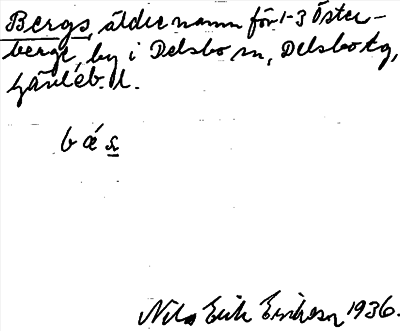 Bergs, äldre namn för 1-3 Öster-
berge, by i Delsbo sn, Delsbo tg,
Gävleb. l.
bǽs
Nils Erik Erikson 1936.